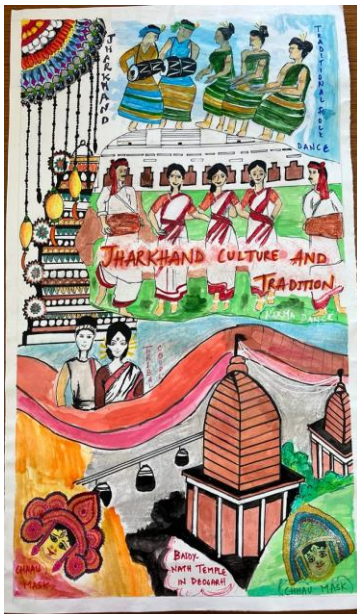 JHARKHAND
TRADITIONAL
DANCE
JHARKHAND CULTURE AND
TRADITION
DANCE
TRIBAL
COUPLE
CHHAU
MASK
BAIDY-
NATH TEMPLE
IN DEOGARH
CHHAU MASK